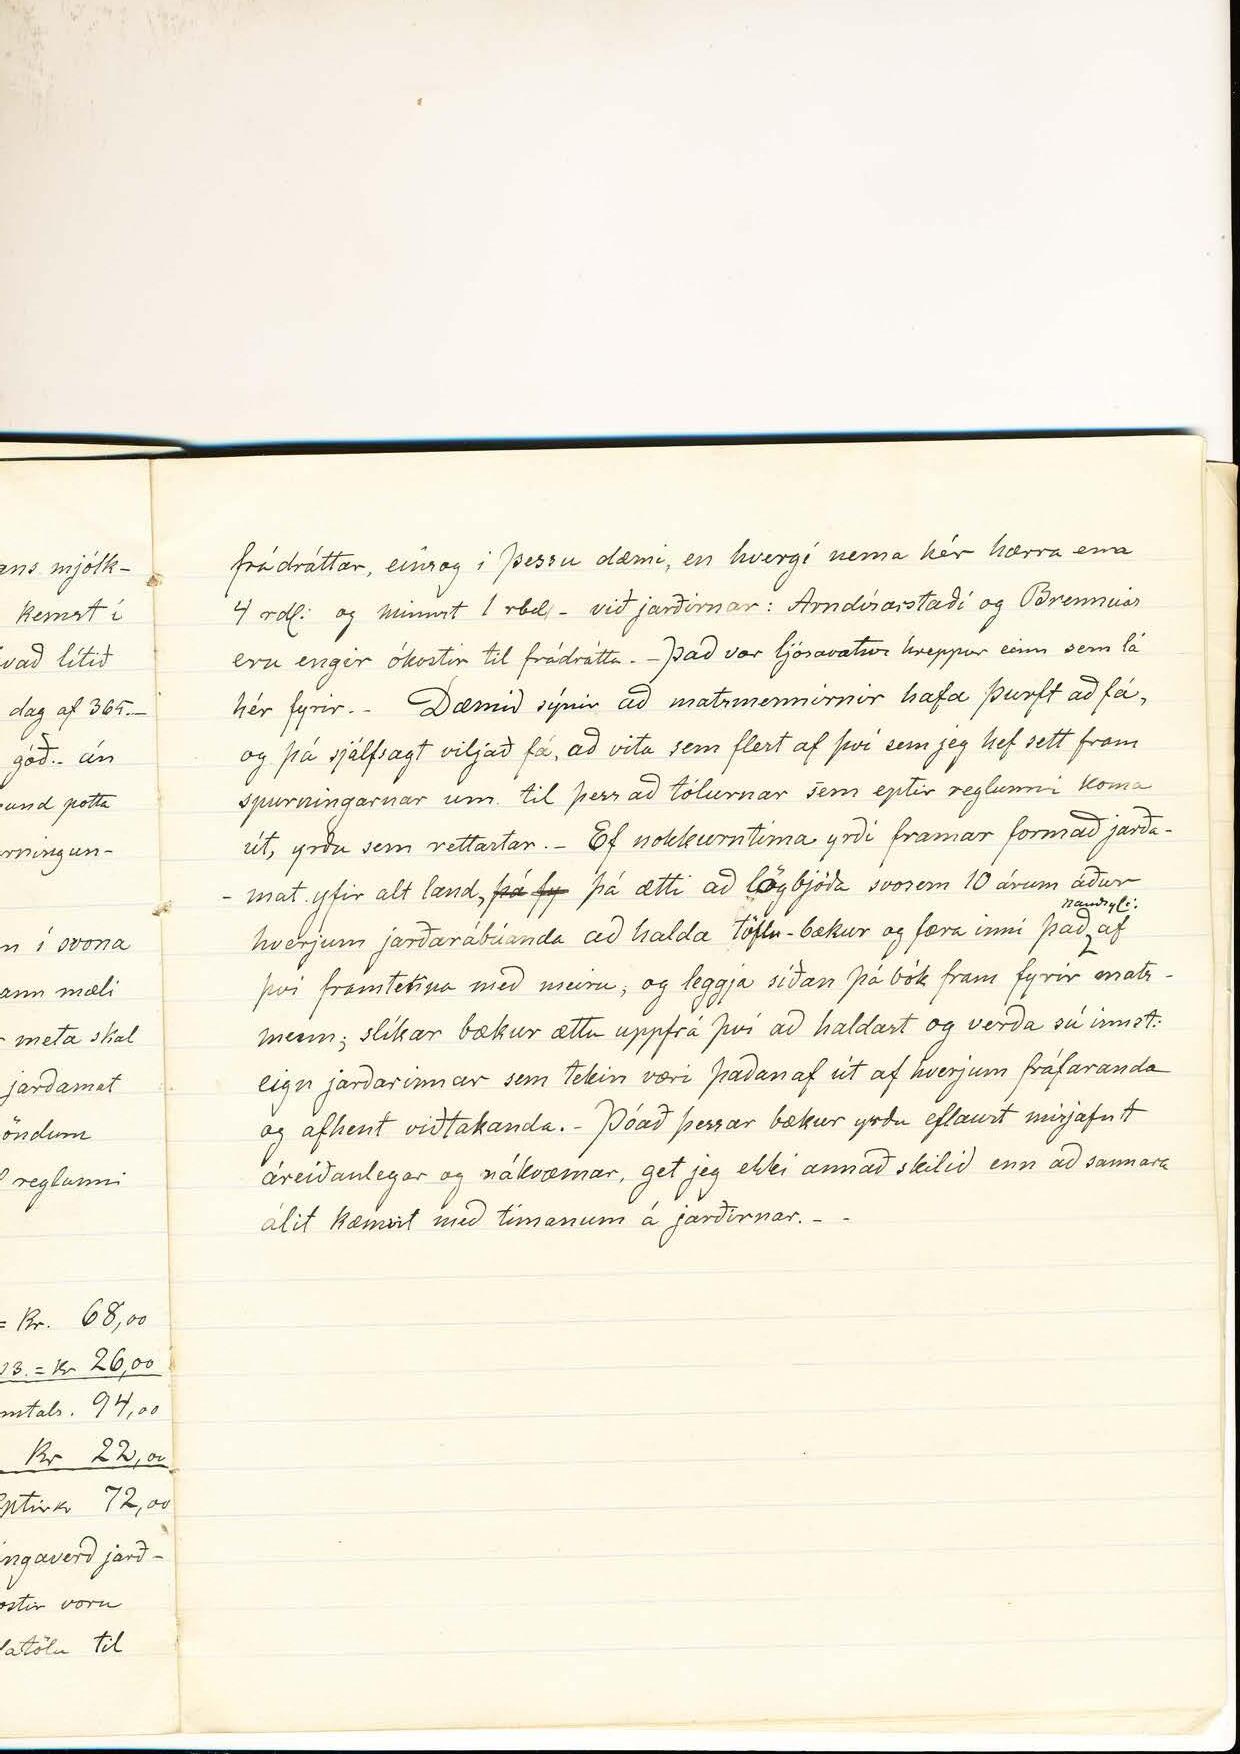 ans mjólk-
kemst í
vað lítið
dag af 365.—
góð.- án
und potta
rningun-
n í svona
ann mæli
meta skal
jarðamat
öndum
reglunni
= Kr. 68,00
23. = Kr 26,00
mtals. 94,00
Kr 22,00
Eptir kr 72,00
ingaverð jarð-
ostir voru
latölu til
frádráttar, einsog i þessu dæmi, en hvergi nema hér hærra enn
4 rdl: og minnst 1 rbd - við jarðirnar: Arndísarstaði og Brenniás
eru engir ókostir til frádrátta. - Það var ljósavatns hreppur einn sem lá
hér fyrir. - Dæmið sýnir að matsmennirnir hafa þurft að fá,
og þá sjálfsagt viljað fá, að vita sem flest af því sem jeg hef sett fram
spurningarnar um. til þess að tölurnar sem eptir reglunni koma
út, yrðu sem rettastar. - Ef nokkurntíma yrði framar formað jarða-
- mat yfir alt land, þá fy þá ætti að lögbjóða svosem 10 árum áður
hverjum jarðarábúanda að halda töflu-bækur og færa inni það nauðsyl: af
því framtetína með meiru, og leggja síðan þá bók fram fyrir mats-
menn; slíkar bækur ættu uppfrá því að haldast og verða sú innst:
eign jarðarinnar sem tekin væri þaðanaf út af hverjum fráfaranda
og afhent viðtakanda. - Þóað þessar bækur yrðu eflaust misjafnt
áreiðanlegar og nákvæmar, get jeg ekki annað skilið enn að sannara
álit kæmist með tímanum á jarðirnar. - -